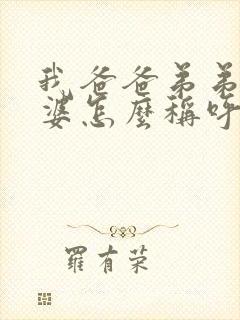 我爸爸弟弟
婆怎麼稱呼
羅有荣